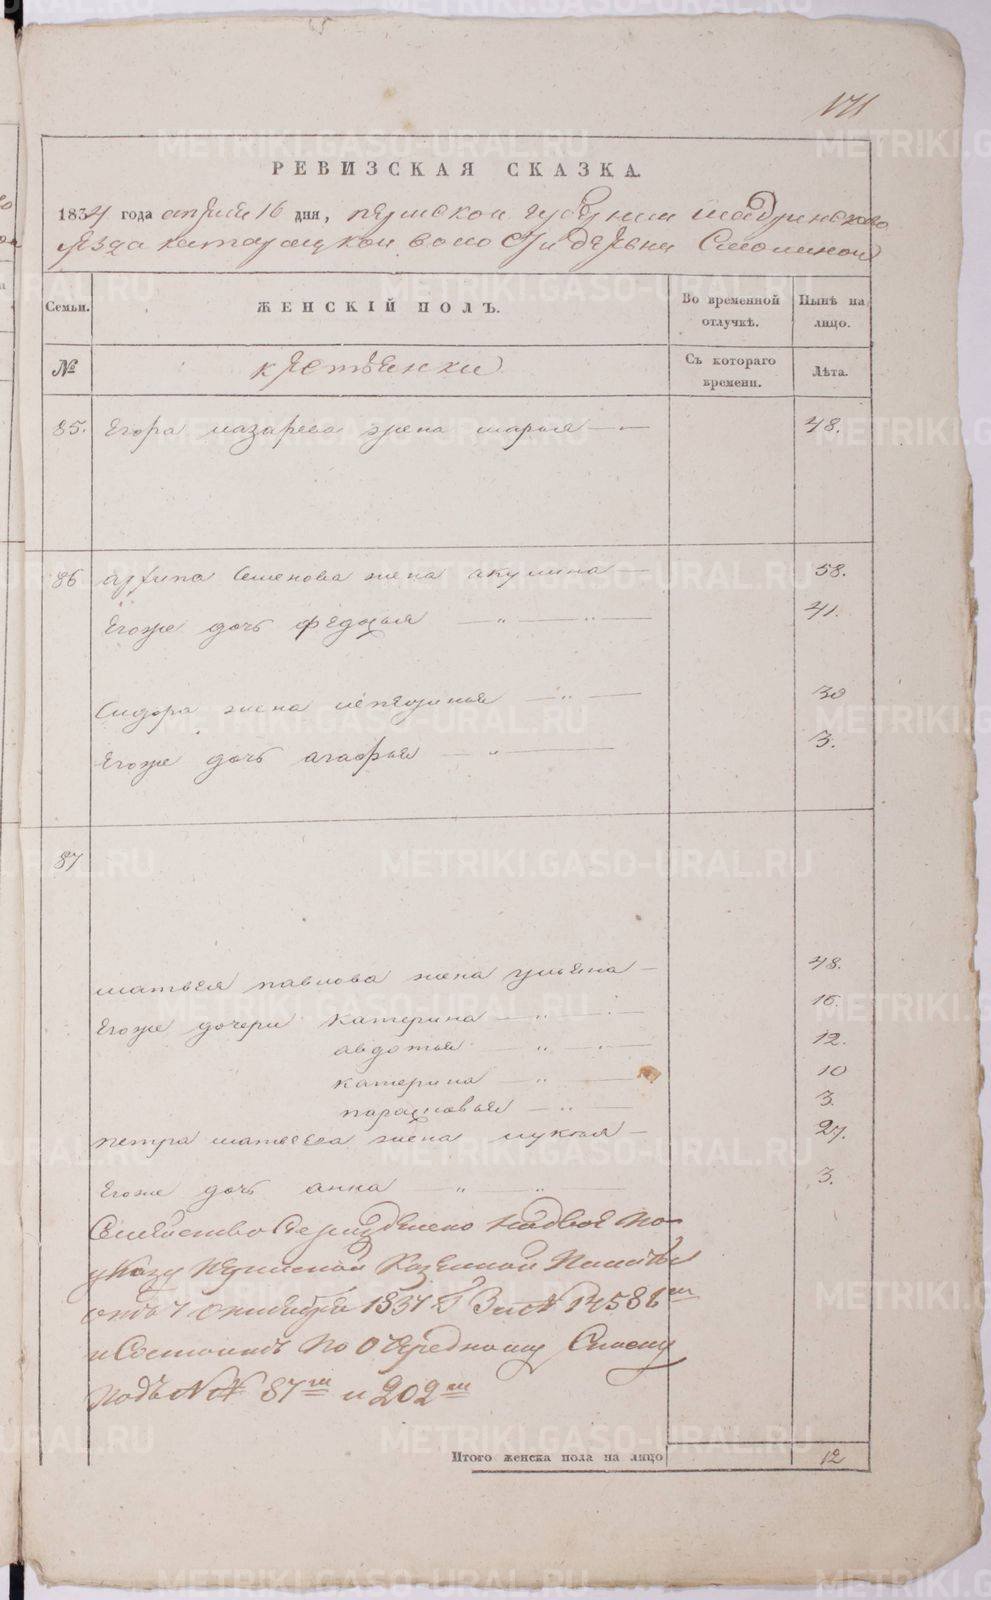 171
РЕВИЗСКАЯ СКАЗКА.
1834 года апреля 16 дня, пермской губернии шадринского
уезда катарацкой волости деревни Смолиной
Семьи. ЖЕНСКІЙ ПОЛЪ. Во временной отлучкѣ. Нынѣ на лицо.
№ крестьянки Съ котораго времени. Лѣта.
85. Егора назарова жена марья 48.
86 архипа Семенова жена акулина 58.
Егоже дочь федосья 41.
Сидора жена 30
Егоже дочь агафья 3.
87
матвея павлова жена ульяна 48.
Егоже дочери катерина 16.
авдотья 12.
катерина 10
парасковья 3.
петра матвеева жена лукия 27.
Егоже дочь анна 3.
Семейство разделено надвое по
указу пермской Казенной Палаты
отъ 7 октября 1837 Г За №
и Состоитъ по очередному Списку
подъ №№ 87м и 202м
Итого женска пола на лицо 12
METRIKI.GASO-URAL.RU